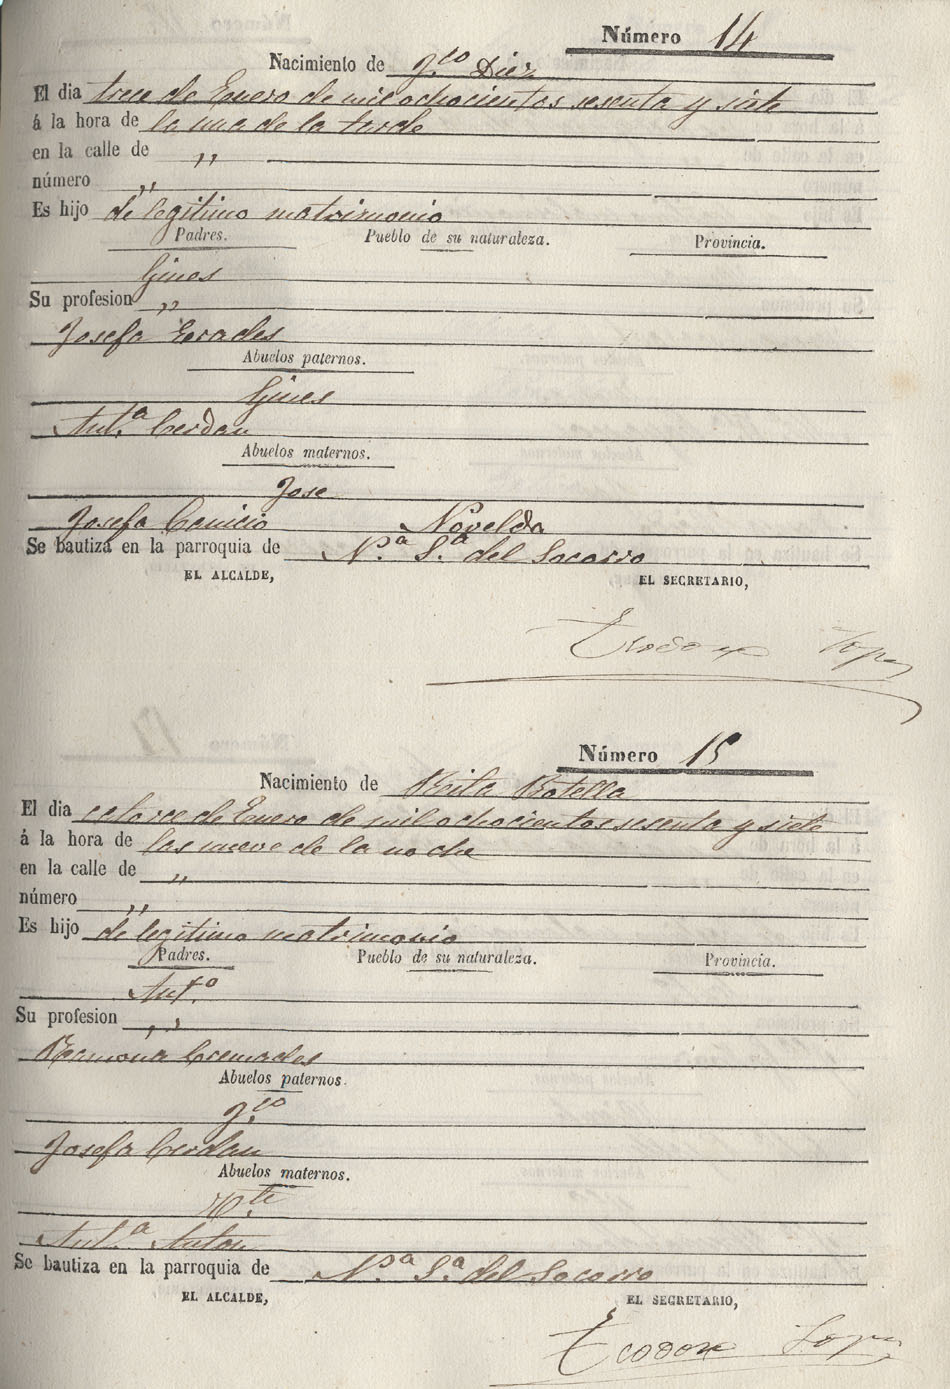 Número 14
Nacimiento de Fco Diez
El dia trece de Enero de mil ochocientos sesenta y siete
á la hora de la una de la tarde
en la calle de ,,
número ,,
Es hijo de legitimo matrimonio
Padres. Pueblo de su naturaleza. Provincia.
Gines
Su profesion ,,
Josefa
Abuelos paternos.
Gines
Ant.ª Cerdan
Abuelos maternos.
Jose
Josefa Canicio Novelda
Se bautiza en la parroquia de N.ª S.ª del Socorro
EL ALCALDE, EL SECRETARIO,
Teodoro Lopez
Número 15
Nacimiento de Rita Botella
El dia catorce de Enero de mil ochocientos sesenta y siete
á la hora de las nueve de la noche
en la calle de ,,
número ,,
Es hijo de legitimo matrimonio
Padres. Pueblo de su naturaleza. Provincia.
Ant.º
Su profesion ,,
Ramona Cremades
Abuelos paternos.
F.co
Josefa Cerdan
Abuelos maternos.
Ant.ª Anton
Se bautiza en la parroquia de N.ª S.ª del Socorro
EL ALCALDE, EL SECRETARIO,
Teodoro Lopez